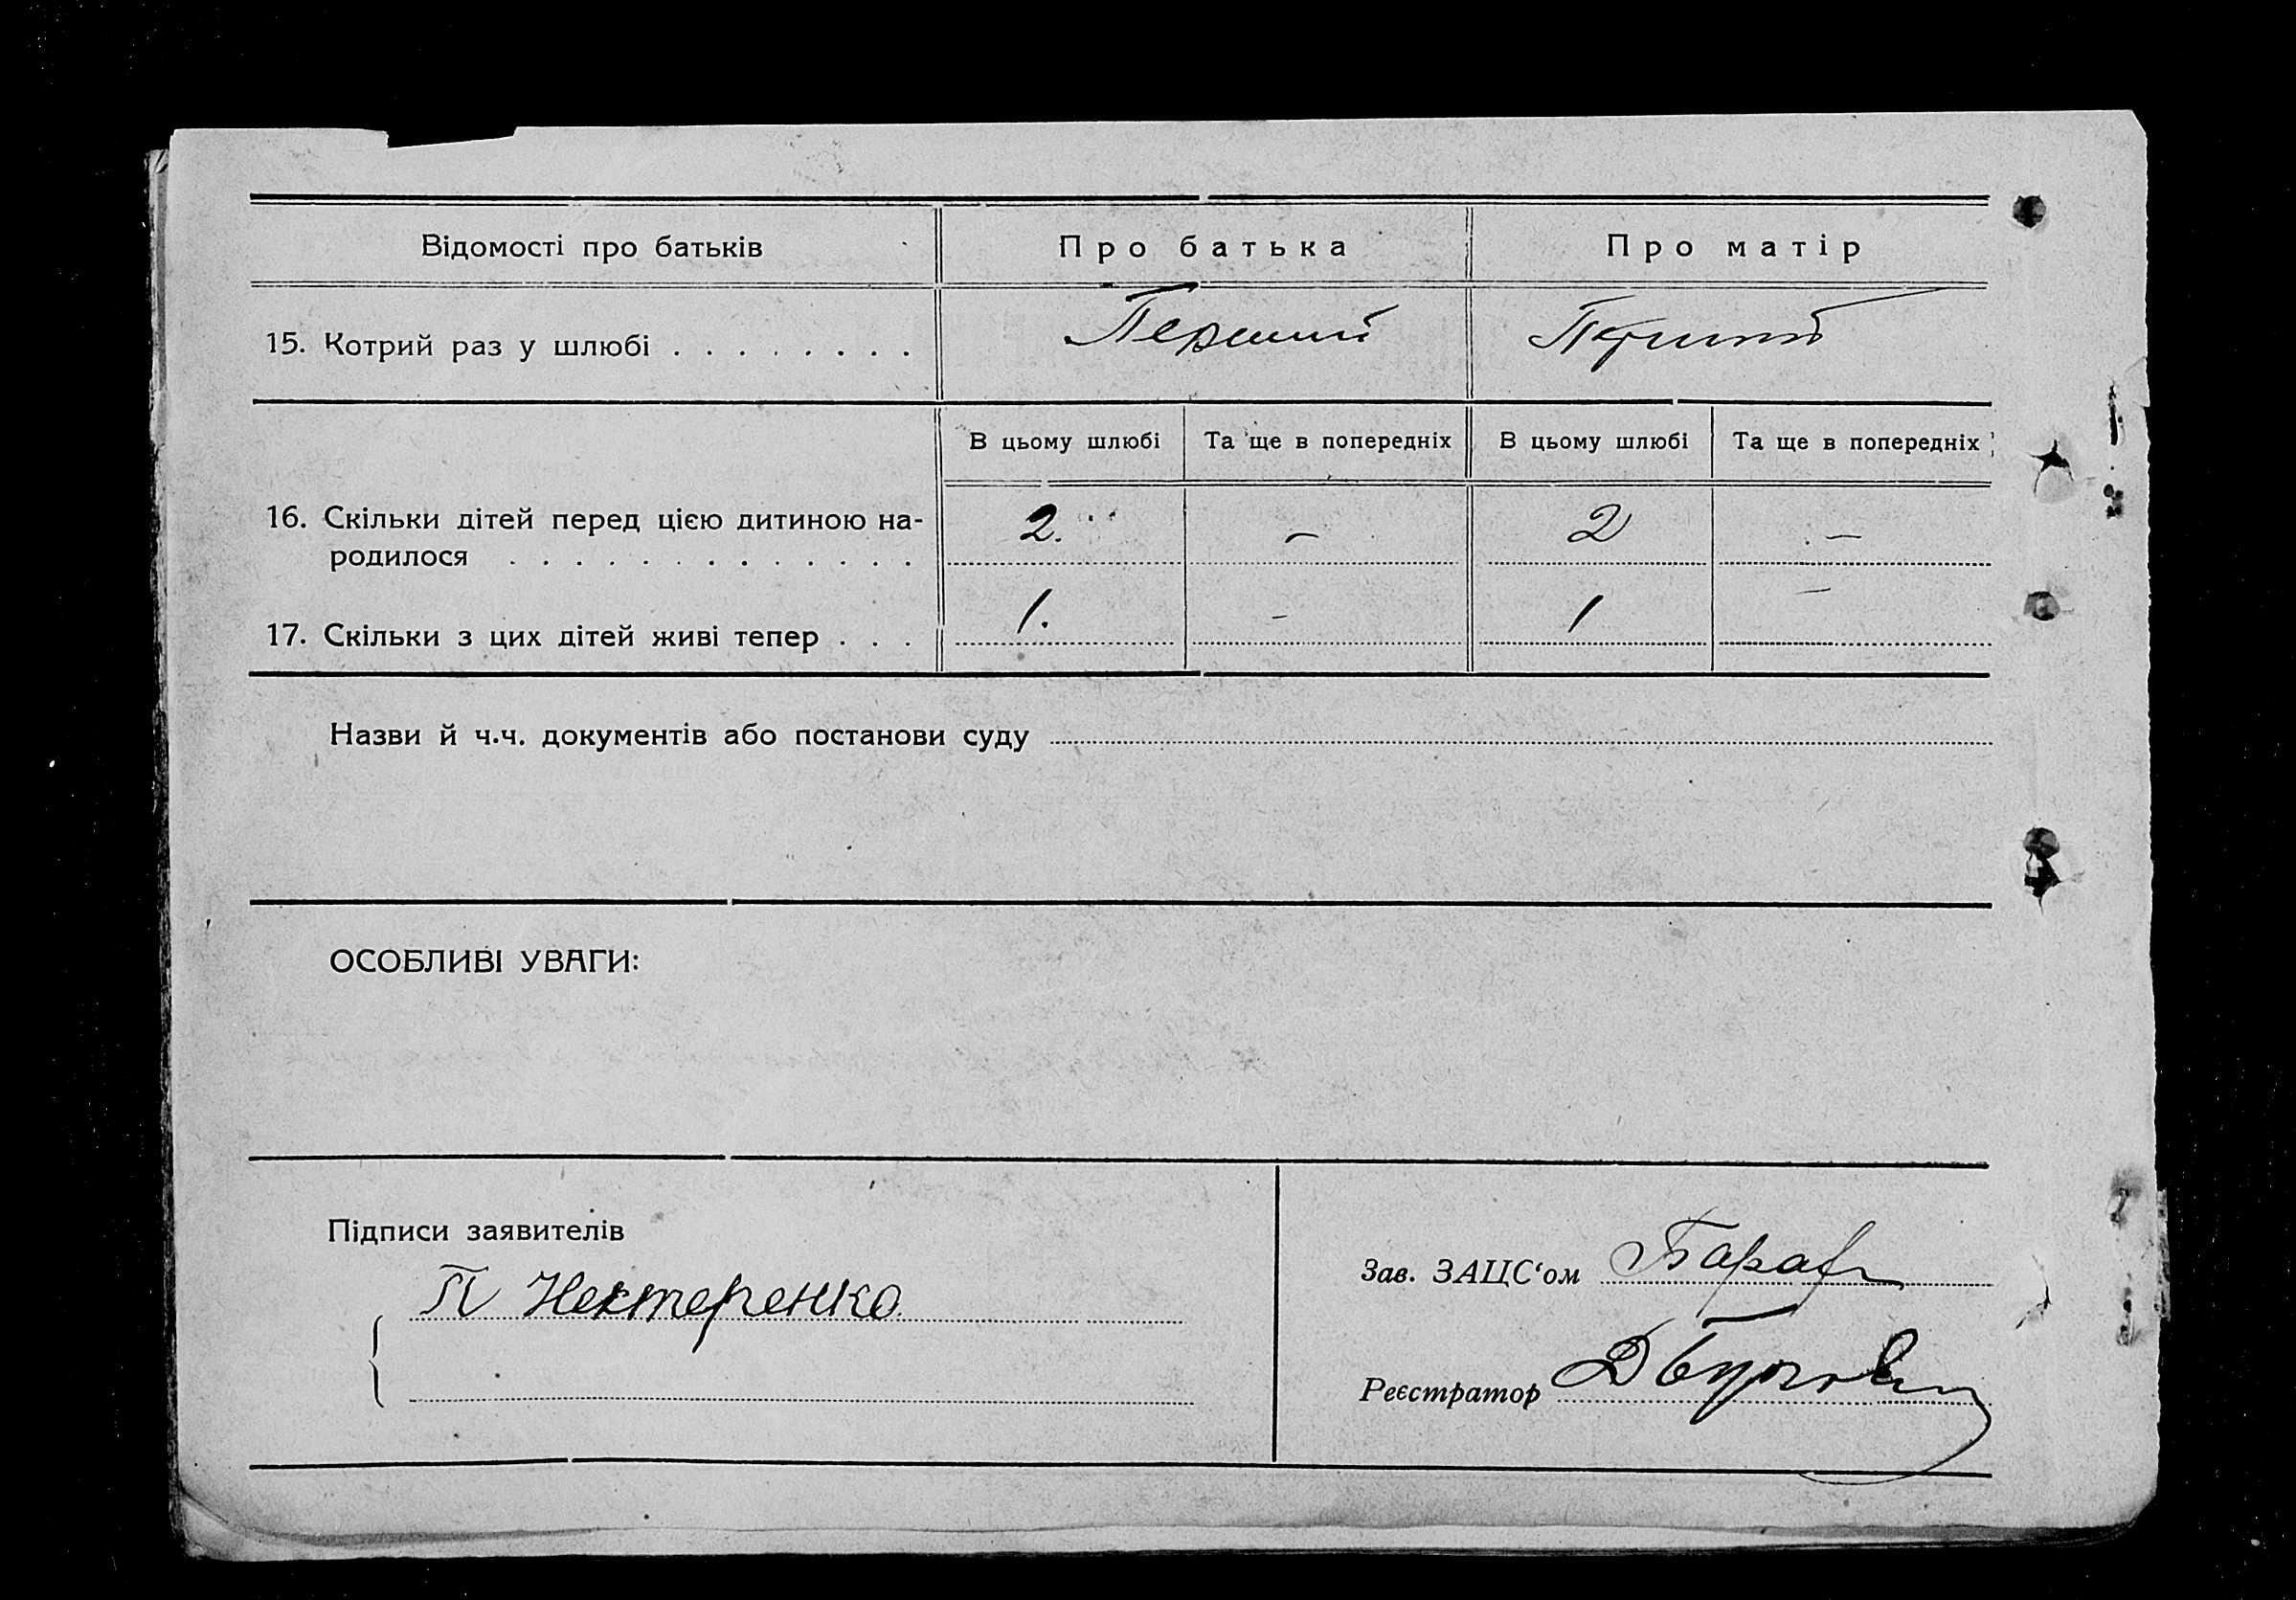 Відомості про батьків Про батька Про матір
15. Котрий раз у шлюбі . . . . . . . . Перший Перший
В цьому шлюбі Та ще в попередніх В цьому шлюбі Та ще в попередніх
16. Скільки дітей перед цією дитиною на-
родилося . . . . . . . . . . . . . 2. – 2 –
17. Скільки з цих дітей живі тепер . . . 1. – 1 –
Назви й ч.ч. документів або постанови суду
ОСОБЛИВІ УВАГИ:
Підписи заявителів
П Нестеренко
Зав. ЗАЦС'ом
Реєстратор